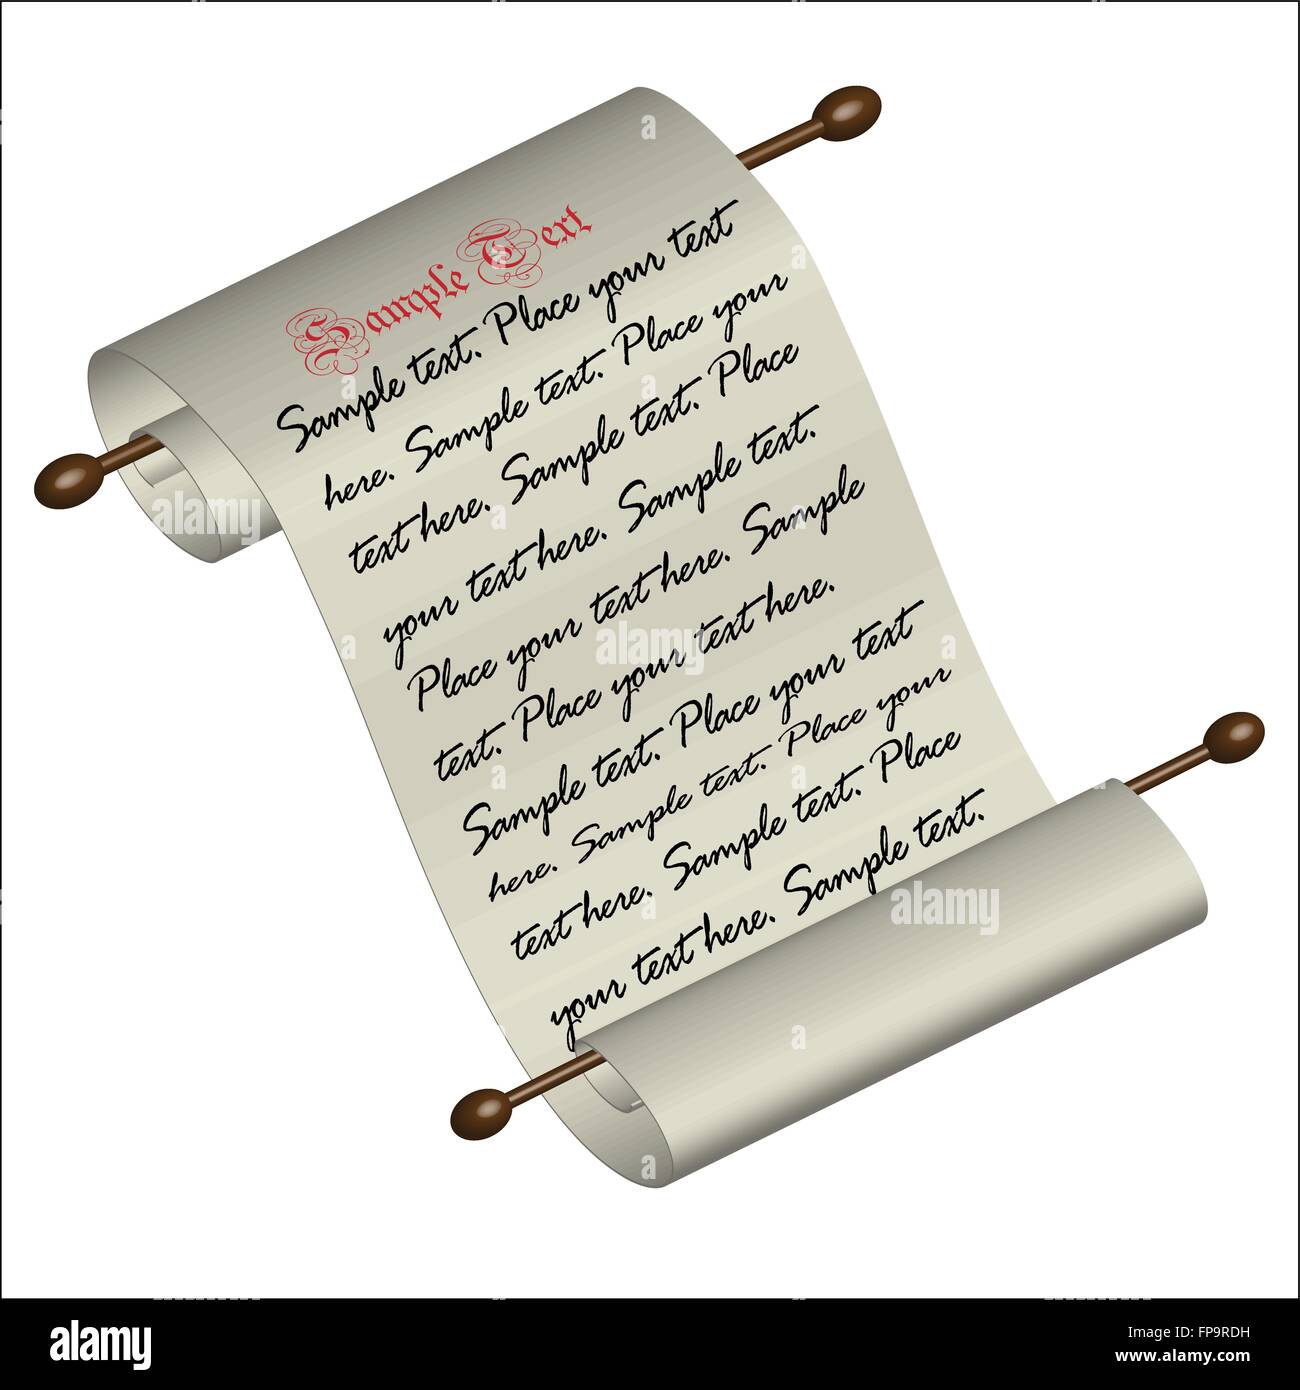 Sample Text
Sample text. Place your text
here. Sample text. Place your
text here. Sample text. Place
your text here. Sample text.
Place your text here. Sample
text. Place your text here.
Sample text. Place your text
here. Sample text. Place your
text here. Sample text. Place
your text here. Sample text.
a
alamy
a
a
alamy
a
a
alamy
a
a
alamy
Image ID: FP9RDH
www.alamy.com